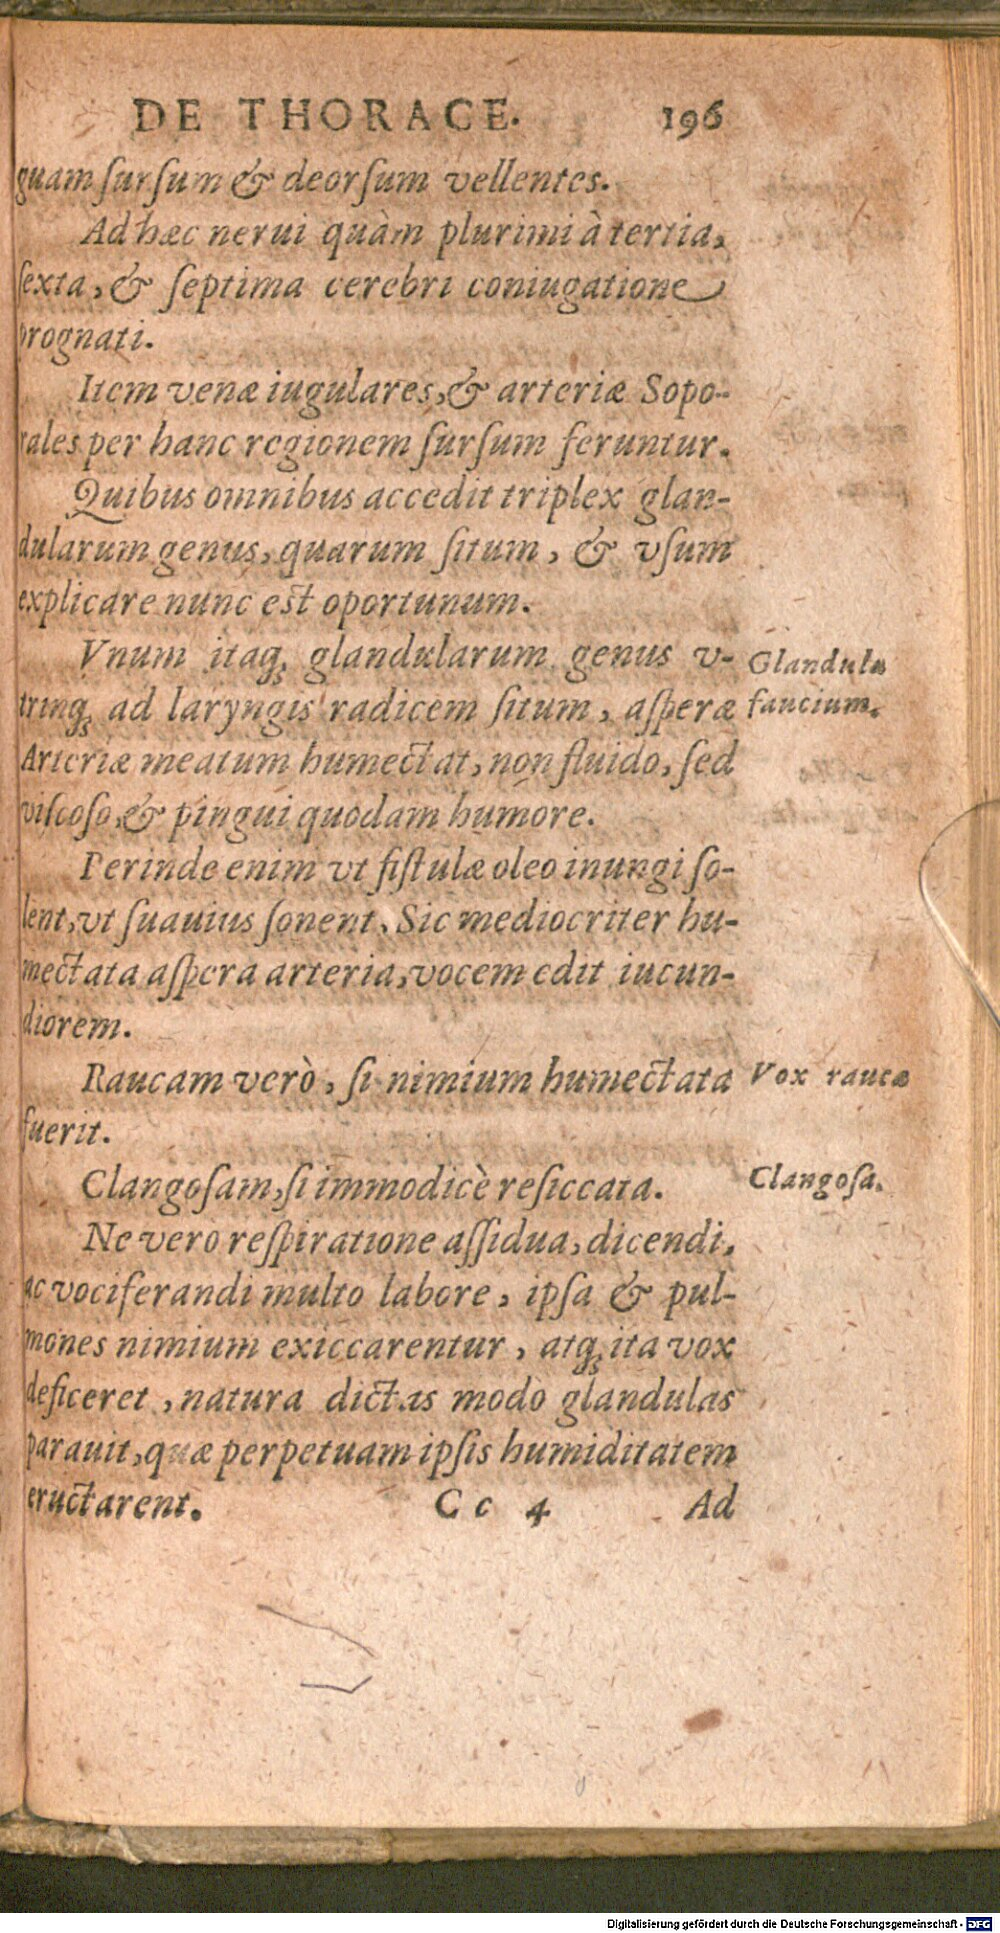 DE THORACE. 196
guam ſurſum & deorſum vellentes.
Ad hæc nerui quàm plurimi à tertia,
ſexta, & ſeptima cerebri coniugatione
prognati.
Item venæ iugulares, & arteriæ Sopo-
rales per hanc regionem ſurſum feruntur.
Quibus omnibus accedit triplex glan-
dularum genus, quarum ſitum, & vſum
explicare nunc est oportunum.
Vnum itaq; glandularum genus v-
trinq; ad laryngis radicem ſitum, aſperæ
Arteriæ meatum humectat, non fluido, ſed
viſcoſo, & pingui quodam humore.
Glandulæ
faucium.
Perinde enim vt fiſtulæ oleo inungi ſo-
lent, vt ſuauius ſonent, Sic mediocriter hu-
mectata aſpera arteria, vocem edit iucun-
diorem.
Raucam verò, ſi nimium humectata
fuerit.
Vox rauca
Clangoſam, ſi immodicè reſiccata.
Clangoſa.
Ne vero reſpiratione aſſidua, dicendi,
ac vociferandi multo labore, ipſa & pul-
mones nimium exiccarentur, atq; ita vox
deficeret, natura dictas modo glandulas
parauit, quæ perpetuam ipſis humiditatem
eructarent. C c 4 Ad
Digitalisierung gefördert durch die Deutsche Forschungsgemeinschaft - DFG